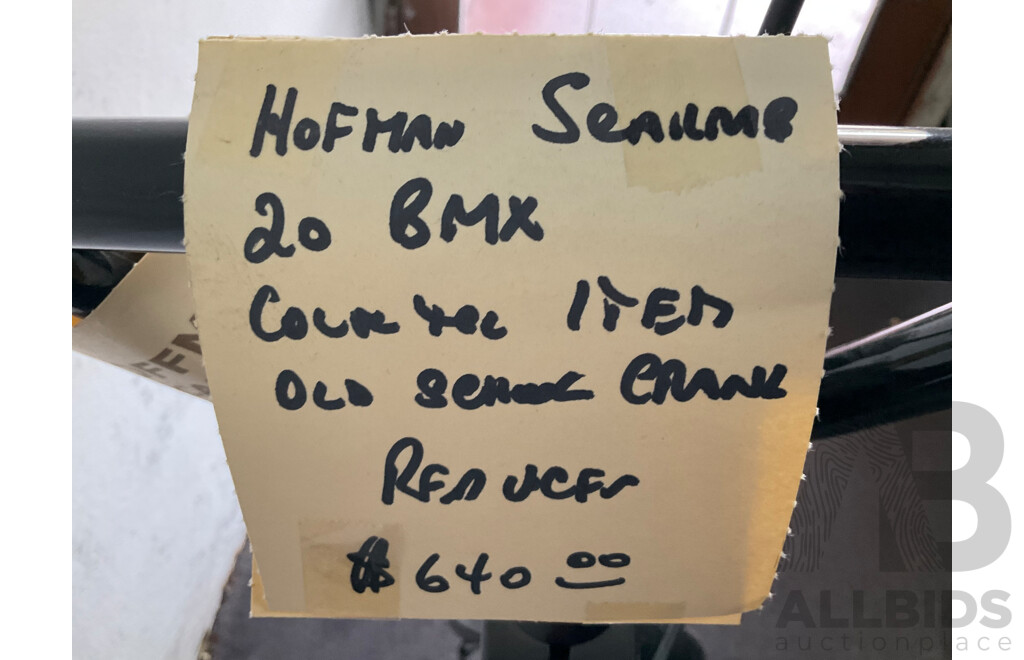 HOFMAN
20 BMX
ITEM
OLD SCHOOL CRANK
REDUCED
$640 00
ALLBIDS
auctionplace